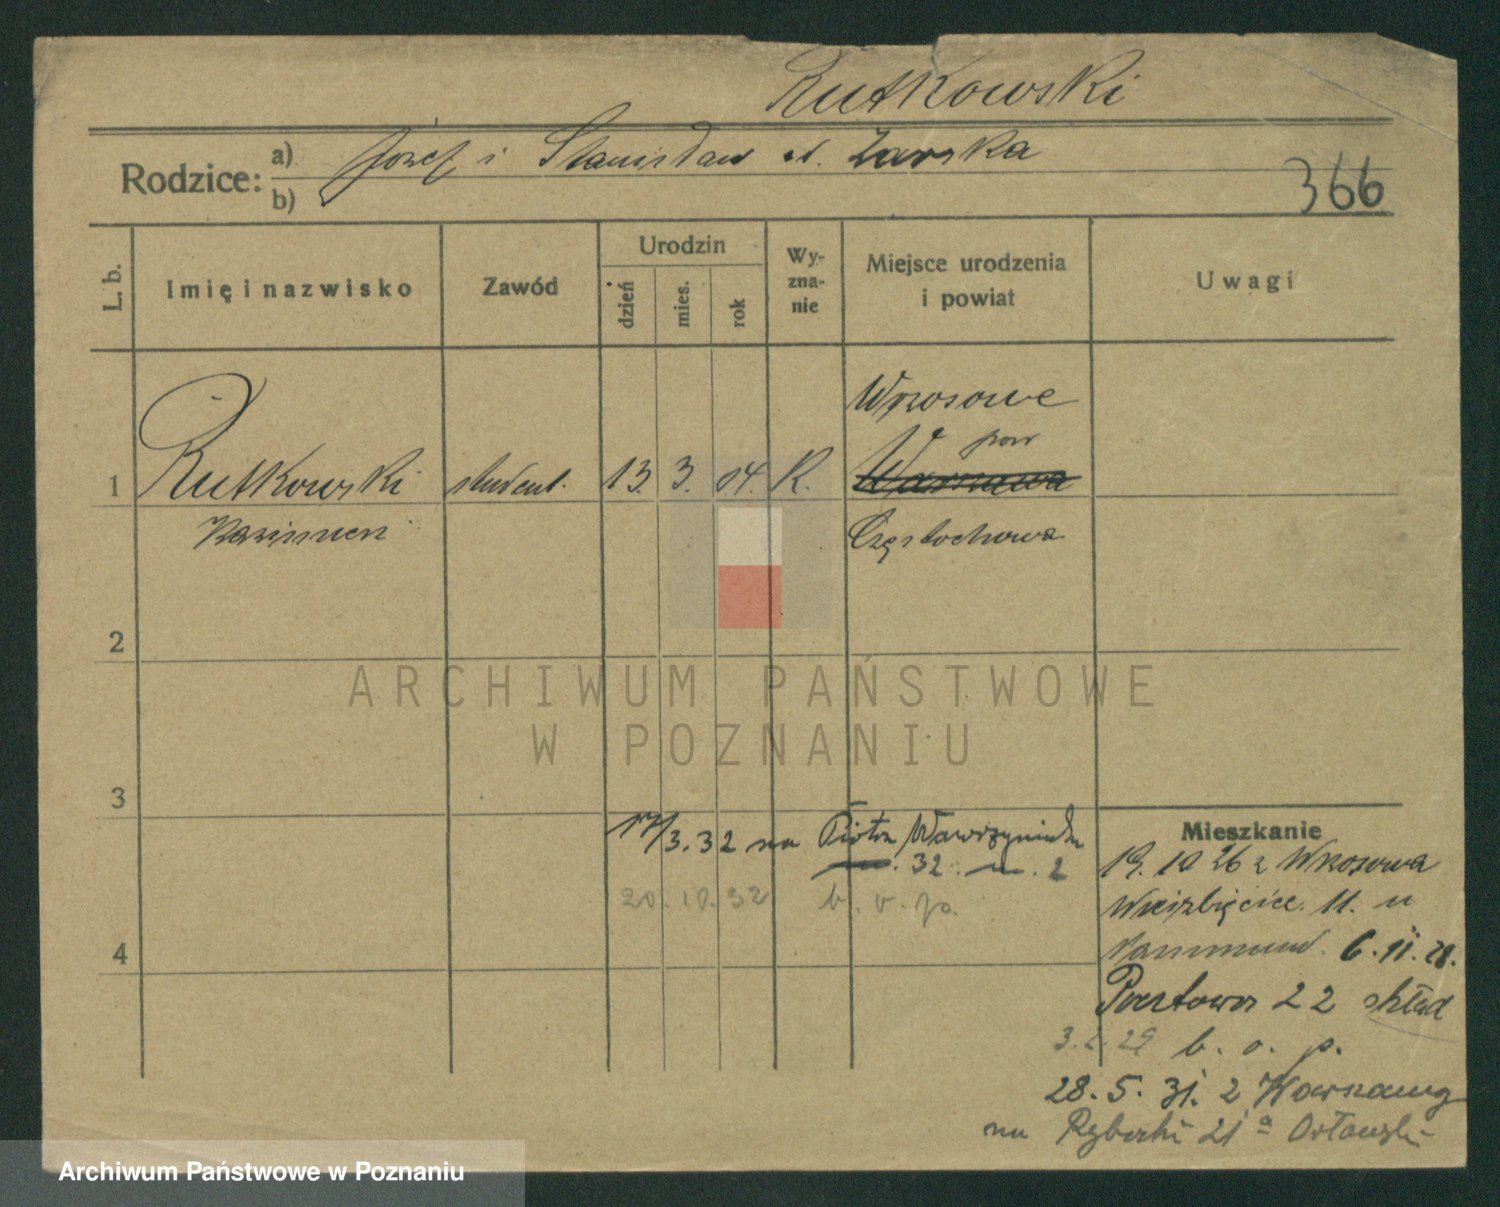 Rutkowski
Rodzice: a) Józef i Stanisława d. Żarska
b)
366
L. b.
Imię i nazwisko
Zawód
Urodzin
dzień
mies.
rok
Wy-
zna-
nie
Miejsce urodzenia
i powiat
Uwagi
Wrosowe
pow
1 Rutkowski student. 13. 3. 04. K. Warszawa
Kazimierz Częstochowa
2
ARCHIWUM PAŃSTWOWE
W POZNANIU
3
Mieszkanie
17/3.32 na Piotra Wawrzyniaka
32 m. 2
20.10.32 b. o. p.
19.10 26 z Wrosowa
Wierzbięcice. 11. u
6.11.28.
4
Pocztowa 22 skład
3.2.29 b. o. p.
28.5.31. z Warszawy
na Rybaki 21a Orłowski
Archiwum Państwowe w Poznaniu